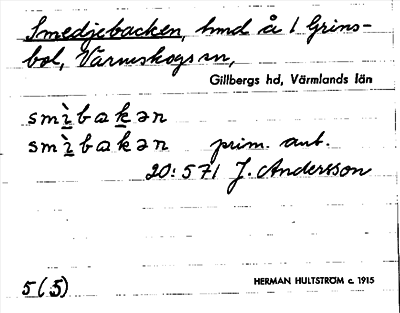 Smedjebacken, hmd å 1 Grins-
bol, Värmskogs sn,
Gillbergs hd, Värmlands län
smìbakən
smìbakən prim. ant.
20:571 J. Andersson
5(5)
HERMAN HULTSTRÖM c. 1915